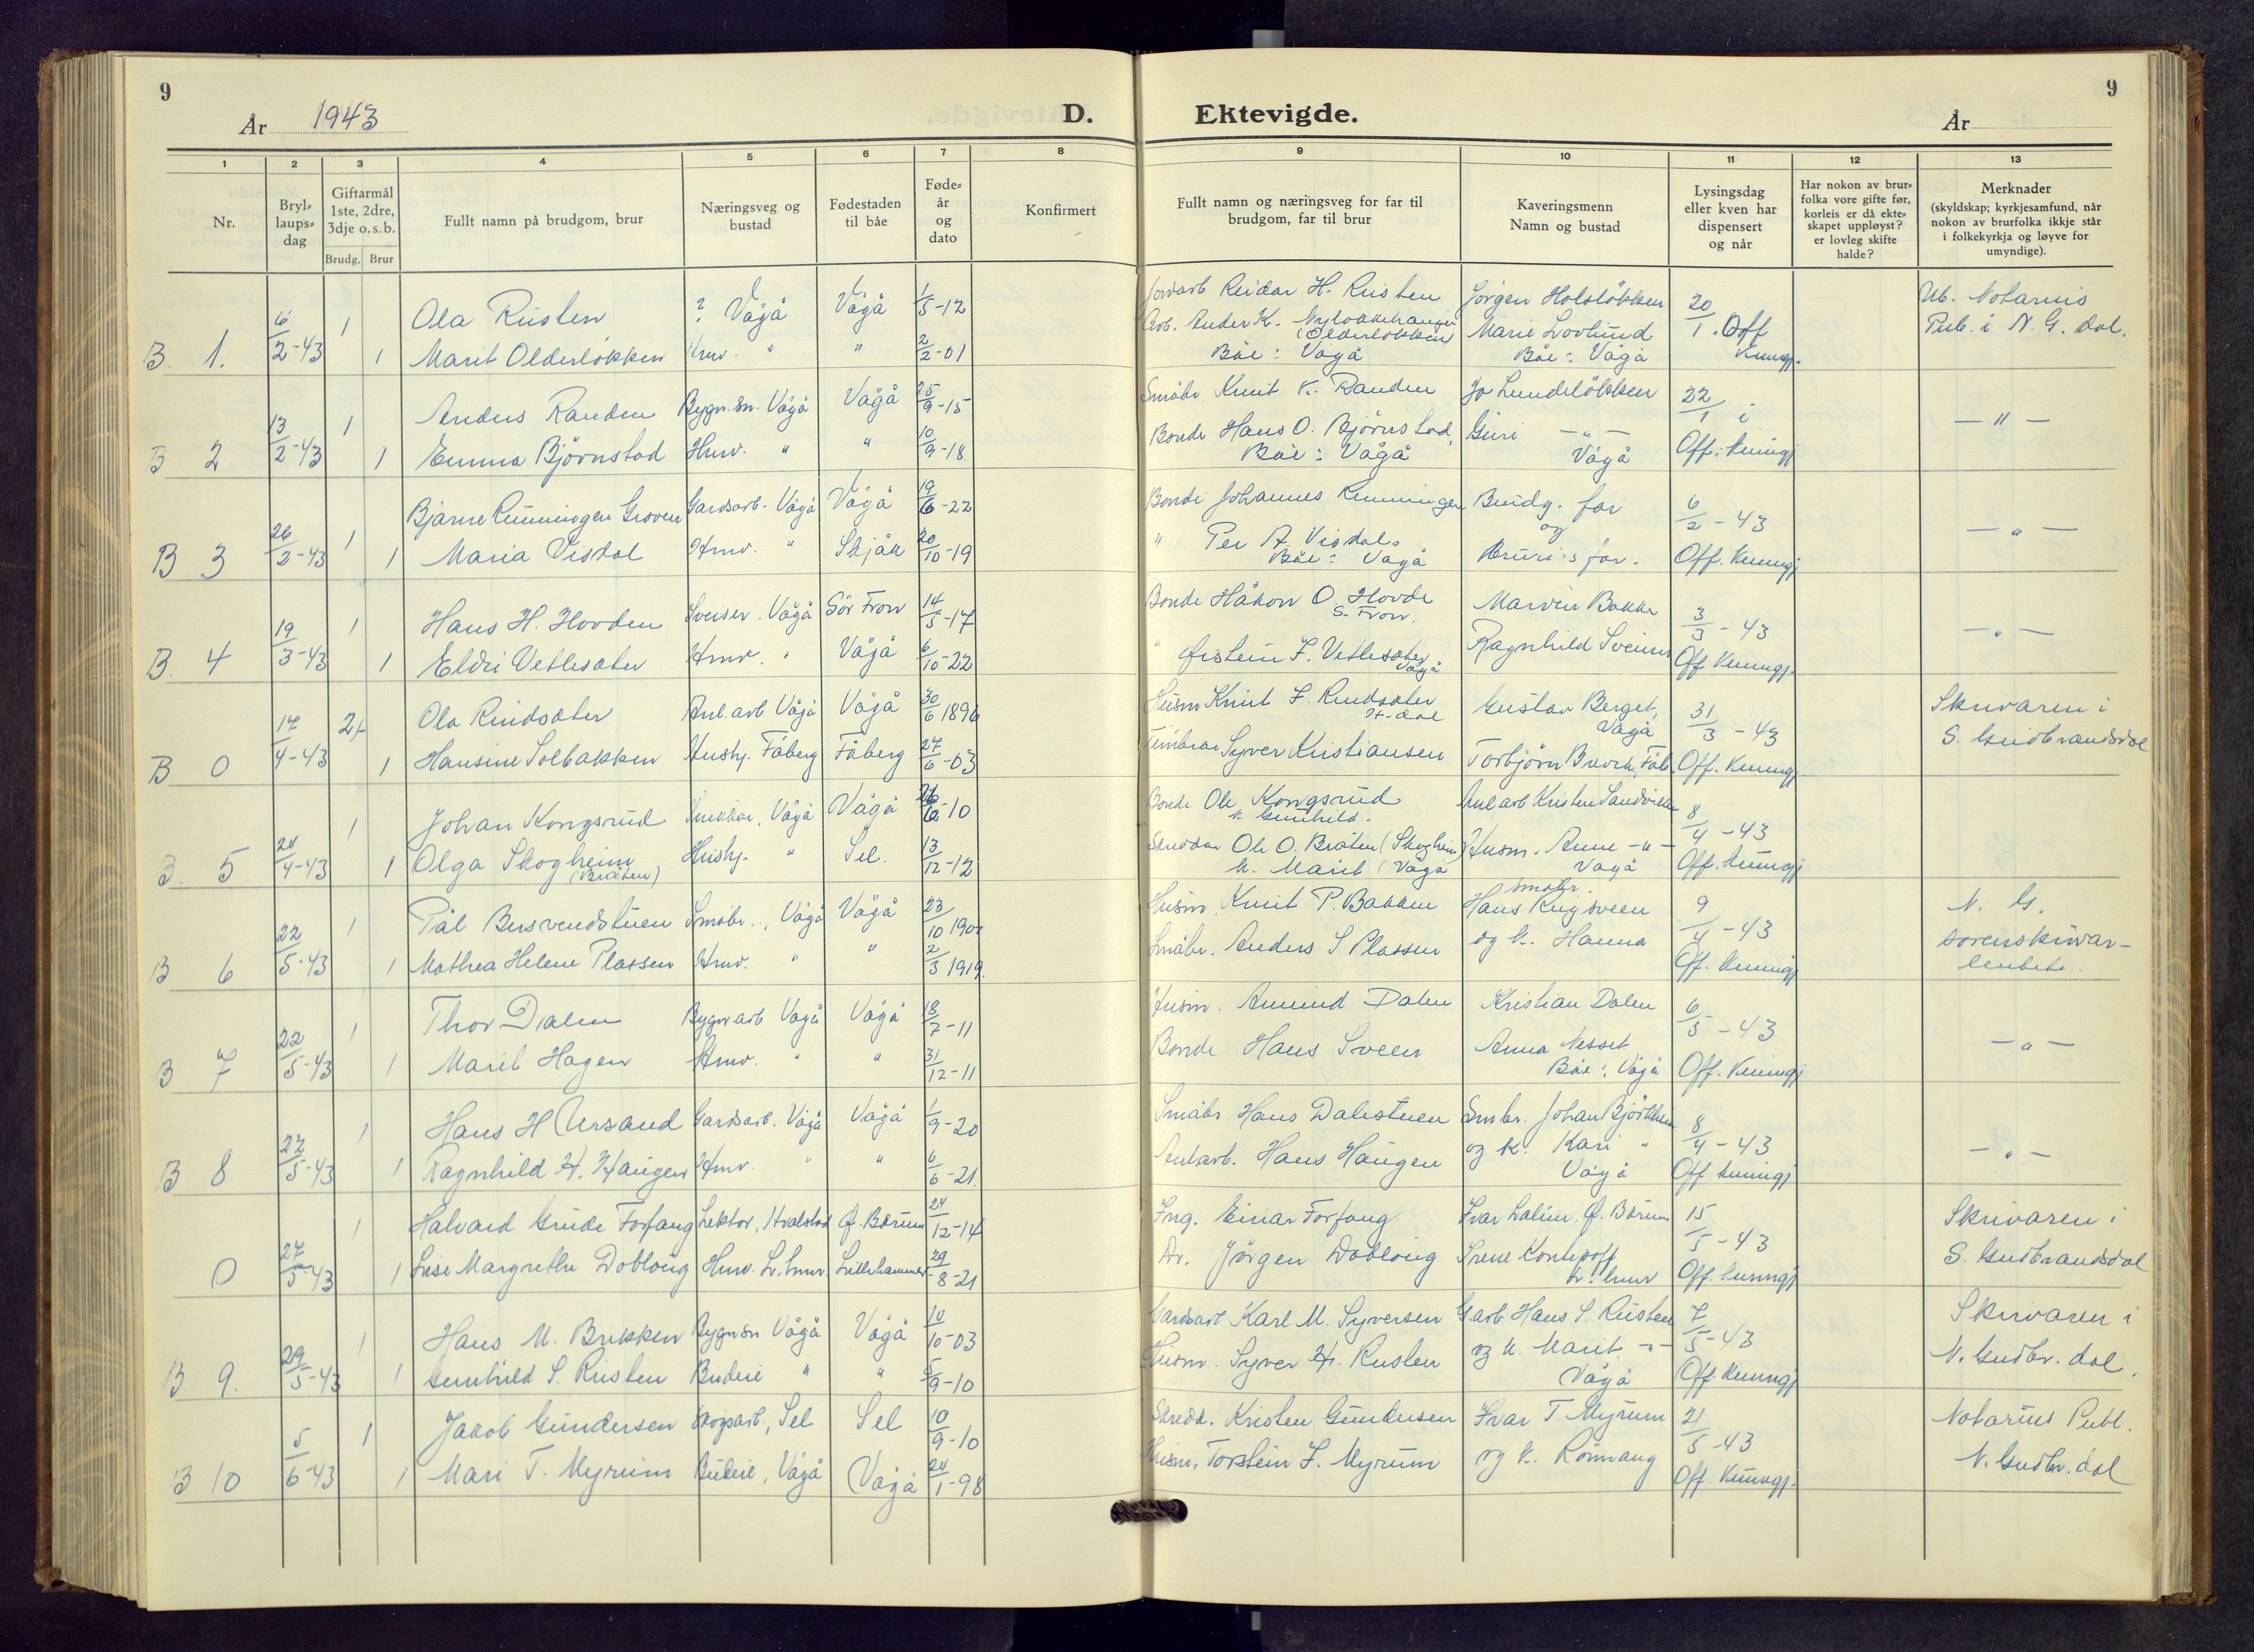 9
År 1943
D.
1 2 3 4 5 6 7 8
Nr.
Bryl-
laups-
dag
Giftarmål
1ste, 2dre,
3dje o.s.b.
Brudg. Brur
Fullt namn på brudgom, brur
Næringsveg og
bustad
Fødestaden
til båe
Føde-
år
og
dato
Konfirmert
1 Ola Risten ? Vågå Vågå 1/5-12
B. 1. 6/2-43 1 Marit Olderløkken Hmv. " " 2/2-01
1 Anders Randen Bygn.sn. Vågå Vågå 25/9-15
B 2 13/2-43 1 Emma Bjørnstad Hmv. " " 10/9-18
1 Bjarne Rimmingen Groven Gardsarb. Vågå Vågå 19/6-22
B 3 26/2-43 1 Maria Visdal Hmv. " Skjåk 20/10-19
1 Hans H. Hovden Sveiser. Vågå Sör Fron 14/5-17
B. 4 19/3-43 1 Eldri Vetlesæter Hmv. " Vågå 6/10-22
2 Ola Rindsæter Anl.arb Vågå Vågå 30/6 1896
B 0 17/4-43 1 Hansine Solbakken Hushj. Fåberg Fåberg 27/6-03
1 Johan Kongsrud Vågå Vågå 26/6-10
B. 5 24/4-43 1 Olga Skogheim Hushj. " Sel. 13/12-12
(Bråten)
1 Pål Bersvendstuen Småbr., Vågå Vågå 23/10
B 6 22/5-43 1 Mathea Helene Plassen Hmv. " " 2/3 1919.
1 Thor Dalen Bygn arb Vågå Vågå 18/7-11
B 7 22/5-43 1 Marit Hagen Hmv. " " 31/12-11
1 Hans H Ursand Gardsarb. Vågå Vågå 1/9-20
B 8 22/5-43 1 Ragnhild H. Haugen Hmv. " " 6/6-21.
1 Halvard Grude Forfang Lektor, Hvalstad Ø. Bærum 24/12-14
0 27/5-43 1 Lise Margrethe Dobloug Hmv. L.hmr. Lillehammer 29/8-21
1 Hans M. Brekken Bygn sn Vågå Vågå 10/10-03
B 9. 29/5-43 1 Gunhild S. Risten Budeie " " 5/9-10
1 Jakob Gundersen Skogsarb., Sel Sel 10/9-10
B 10 5/6-43 1 Mari T. Myrum Budeie, Vågå Vågå 24/1-98
Ektevigde.
År
9
9 10 11 12 13
Fullt namn og næringsveg for far til
brudgom, far til brur
Kaveringsmenn
Namn og bustad
Lysingsdag
eller kven har
dispensert
og når
Har nokon av brur-
folka vore gifte før,
korleis er då ekte-
skapet uppløyst?
er lovleg skifte
halde?
Merknader
(skyldskap; kyrkjesamfund, når
nokon av brurfolka ikkje står
i folkekyrkja og løyve for
umyndige).
Jordarb Reidar H. Risten Jørgen Holsløkken 20/1. Off Ub. Notarius
Arb. Anders K. Marie Løvlund Kunngj. Pub. i N. G. dal.
(Olderløkken)
Båe: Vågå Båe: Vågå
Småbr Knut K. Randen Jo Lundeløkken 22/1 — " —
Bonde Hans O. Bjørnstad, Guri — " — Off. kunngj
Båe: Vågå Vågå
Bonde Johannes Rimmingen Brudg. far 6/2-43 — " —
og
" Per A Visdal. Bruri s far. Off. Kunngj
Båe: Vågå
Bonde Håkon O. Hovde Marvin Bakke 3/3-43 — " —
S. Fron.
" Øistein F. Vetlesæter Ragnhild Off Kunngj.
Vågå
Husm Knut F. Rindsæter Gustav Berget, 31/3-43 Skrivaren i
Vågå
Syver Kristiansen Torbjørn Fåb. Off. Kunngj. S. Gudbrandsdal
Bonde Ole Kongsrud Anl arb Kristen Sandviken 8/4-43
k. Gunhild.
Ole O. Bråten (Skogheim) Husm. Anne — " — Off. kunngj
k. Marit (Vågå Vågå
Småbr.
Husm. Knut P. Bakken Hans Rugsveen 9/4-43 N. G.
Småbr. Anders S Plassen og k. Hanna Off. Kunngj sorenskrivar-
embete.
Husm. Amund Dalen Kristian Dalen 6/5-43
Bonde Hans Sveen Anna Nesset — " —
Båe: Vågå Off. Kunngj
Småbr. Hans Dalestuen Smbr. Johan Bjørkken 8/4-43
Anlarb. Hans Haugen og k. Kari " — " —
Vågå Off kunngj
Ing. Einar Forfang Ivar Lalim. Ø. Bærum 15/5-43 Skrivaren i
Dr. Jørgen Dobloug Irene Off. kunngj S. Gudbrandsdal
L. hmr
Gardsarb Karl M. Syversen Garb Hans S. Risten 7/5-43 Skrivaren i
Husm. Syver H. Rusten og k. Marit — " — N. Gudbr. dal.
Vågå Off. Kunngj
Skredd. Kristen Gundersen Ivar T Myrum 21/5-43 Notarius Publ.
Husm. Torstein I. Myrum og k. Rønnaug Off. Kunngj. N. Gudbr. dal